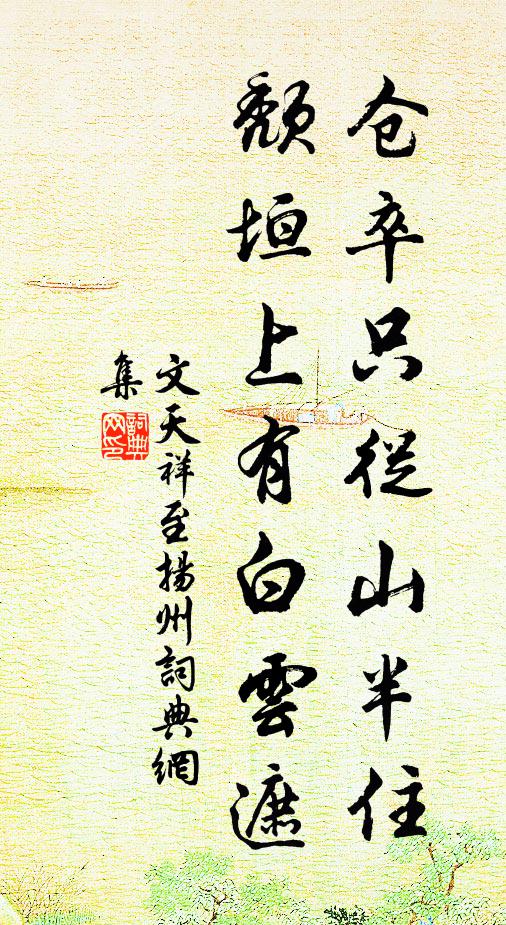 仓卒只從山半住
颓垣上有白雲遮
文天祥至揚州詞典網
集
詞典網印